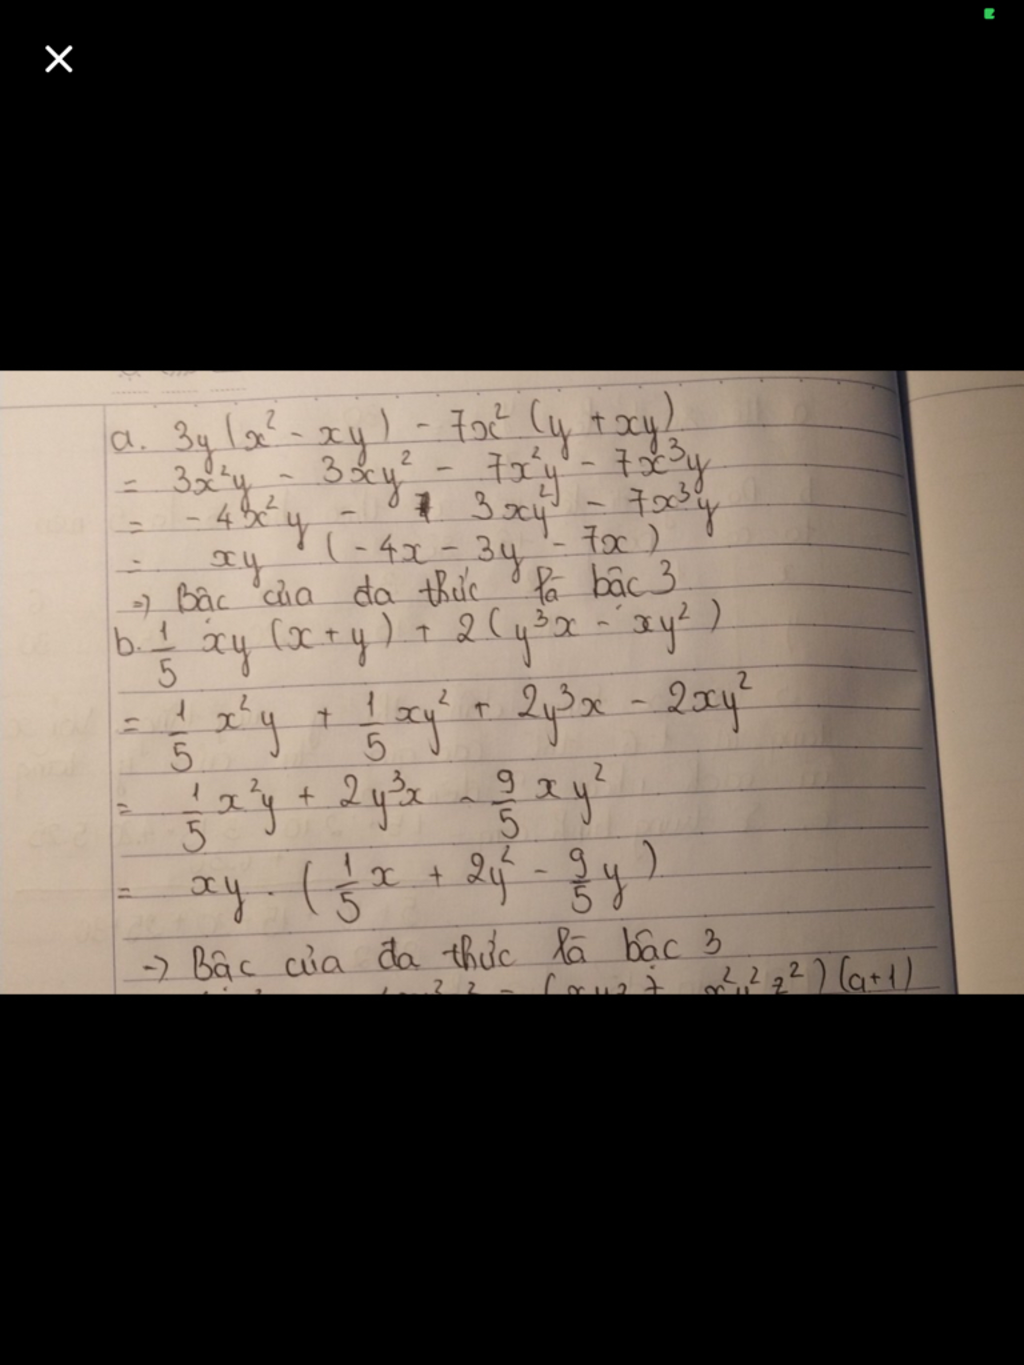 a. 3y(x² - xy) - 7x² (y + xy)
= 3x²y - 3xy² - 7x²y - 7x³y
= - 4x²y - 3xy² - 7x³y
= xy (-4x - 3y - 7x)
=) Bậc của đa thức là bậc 3
b. 1/5 xy (x + y) + 2(y³x - xy²)
= 1/5 x²y + 1/5 xy² + 2y³x - 2xy²
= 1/5 x²y + 2y³x - 9/5 xy²
= xy . (1/5 x + 2y² - 9/5 y)
-) Bậc của đa thức là bậc 3
x²y²z²)(a+1)